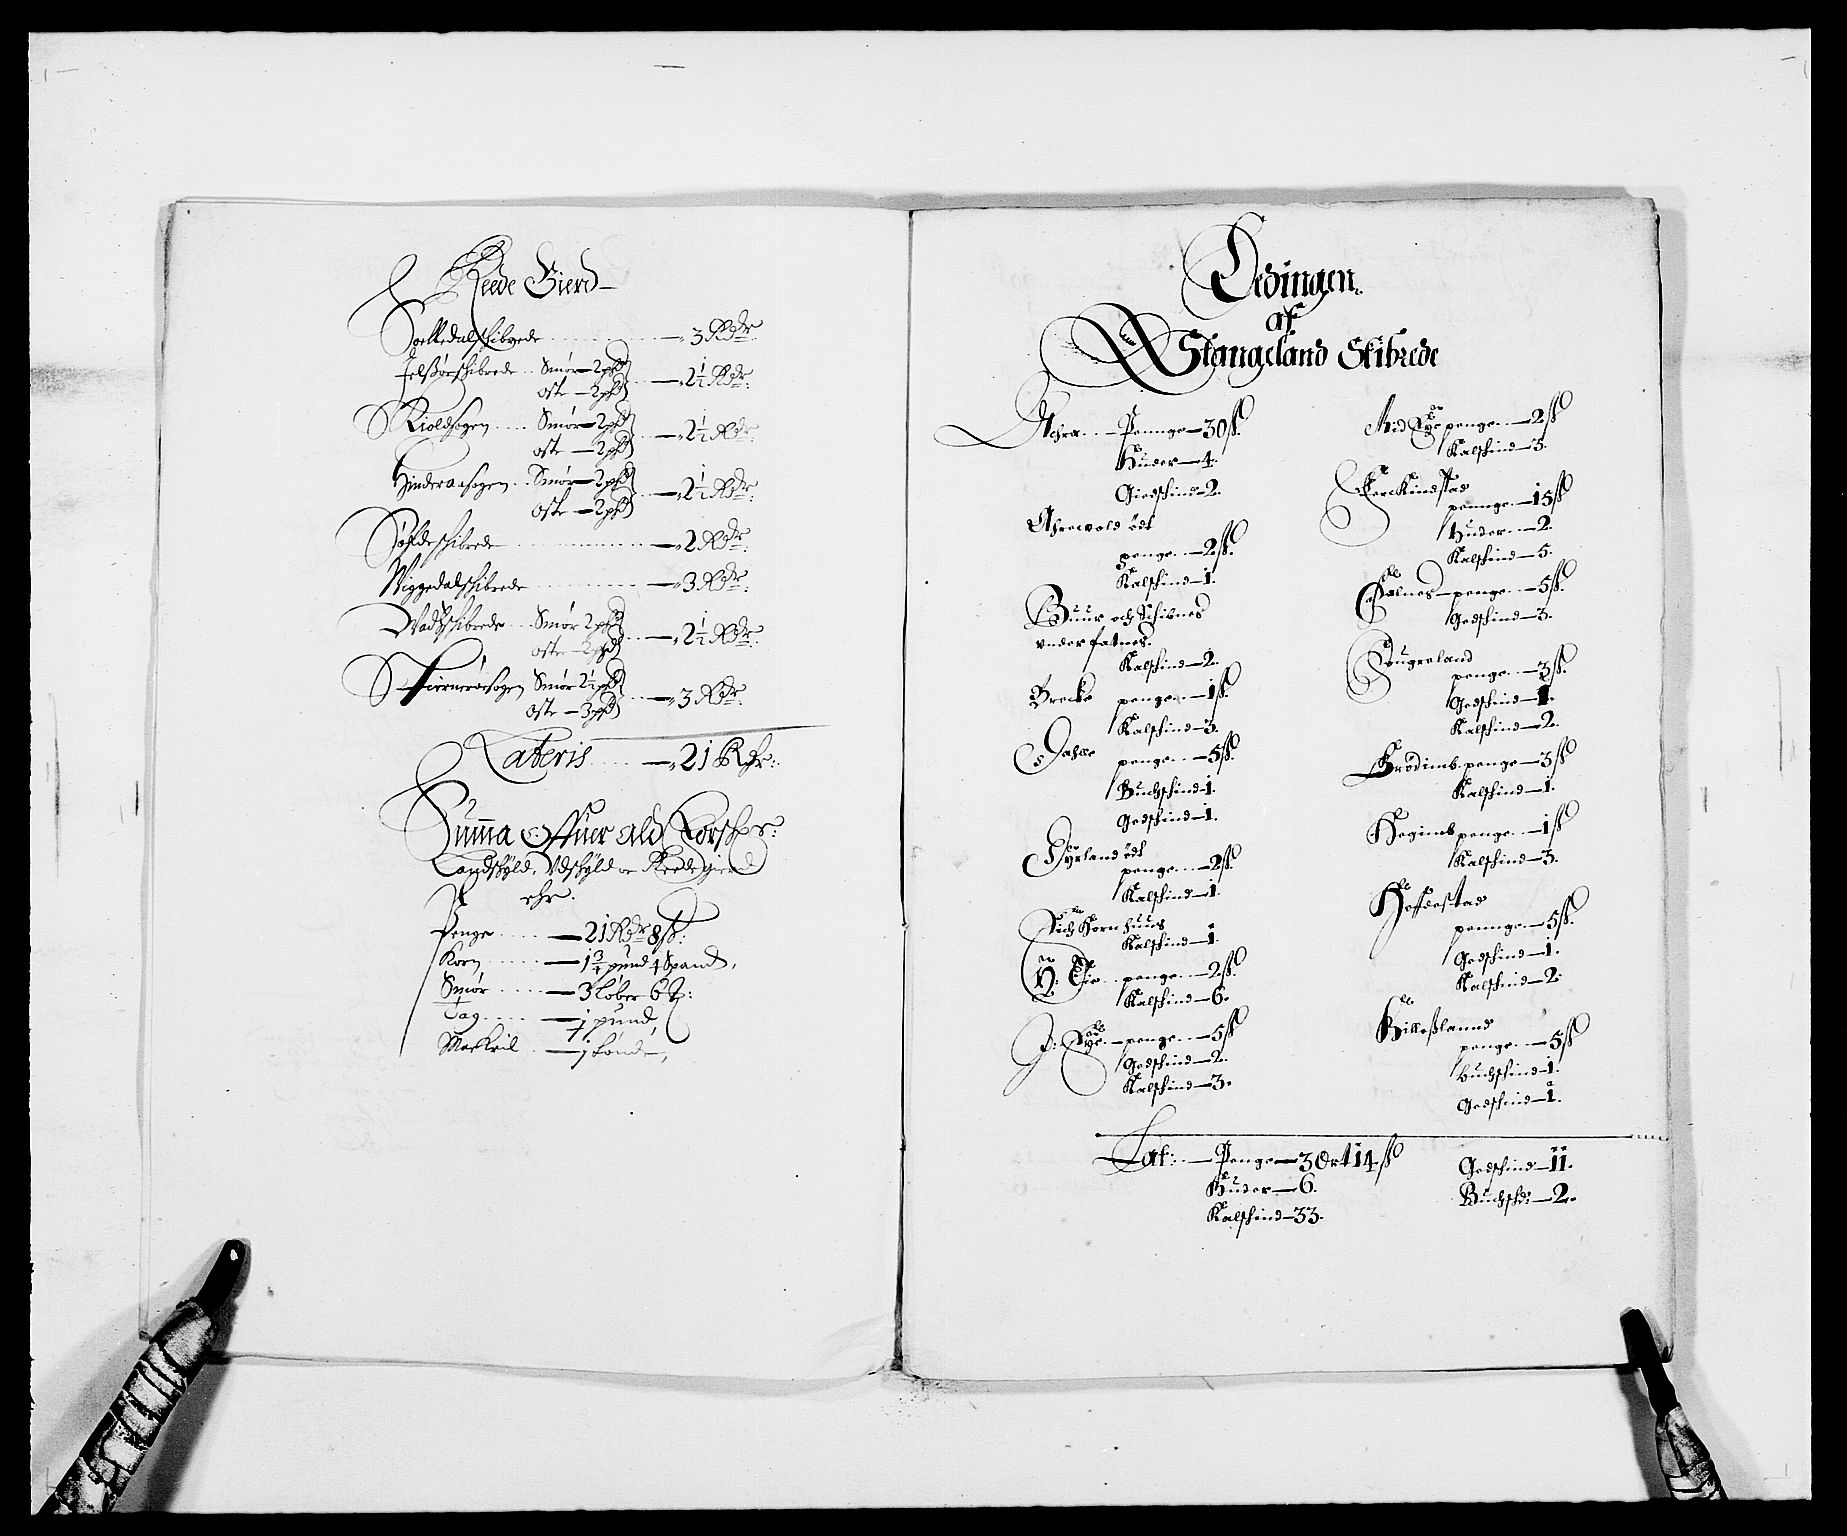 Reede Gierd
Soelledalschibrede — 3 Rdr:
Jelsørschibrede Smør — 2 pd
oste — 2 pd — 2½ Rdr:
Kioldsogen Smør — 2 pd
oste — 2 pd — 2½ Rdr:
Hinderaasogen Smør — 2 pd
oste — 2 pd — 2½ Rdr:
Søfdeschibrede — 2 Rdr:
Wiggedalschibrede — 3 Rdr:
Wadschibrede Smør 2 pd
oste — 2 pd — 2½ Rdr:
Fiernerøesogen Smør 2½ pd
oste — 3 pd — 3 Rdr:
Lateris — 21 Rdr:
Summa Offuer ald Forsch:
Landskyld, Udskyld oc Reedegierd
ehr.
Penge — 21 Rdr 8 ß:
Korn — 1¾ pund 4 Spand,
Smør — 3 løber 6
Tag — 1 pund,
Mackril — 1 tønde,
Ledingen
af
Stangeland Skibrede
Achra — Pennge — 30 ß.
Huder — 4.
Giedschind — 2.
Ahrewold ödt
penge — 2 ß.
Kalschind — 1.
Buur och Schibnes
under fatnes.
Kalschind — 2.
Brecke penge — 1 ß.
Kalschind — 3.
Dahle penge — 5 ß.
Buchschind — 1.
Gedschind — 1.
Dyrland ödt
penge — 2 ß.
Kalschind — 1.
Kornhuus
Kalschind — 1.
N: Eie penge — 2 ß.
Kalschind — 6.
I: Eye — penge — 5 ß
Gedschind — 2.
Kalschind — 3.
Mid Eye penge — 2 ß
Kalschind — 3.
Ferckindstad
pennge — 15 ß
Huder — 2.
Kalschind — 5.
Falnes — penge — 5 ß.
Gedschind — 3.
Fugeland
penge — 3 ß.
Gedschind — 1.
Kalschind — 2.
Grödimb penge — 3 ß
Kalschind — 1.
Hegimb penge — 1 ß
Kalschind — 3.
Hoffdestad
pennge — 5 ß.
Gedschind — 1.
Kalschind — 2.
Hilleßlannd
penge — 5 ß
Buchschind — 1.
Gedschind — 1.
Lat: — Penge — 3 Ort 14 ß
Huder — 6.
Kalschind — 33.
Gedschind — 11.
Buchschd: — 2.